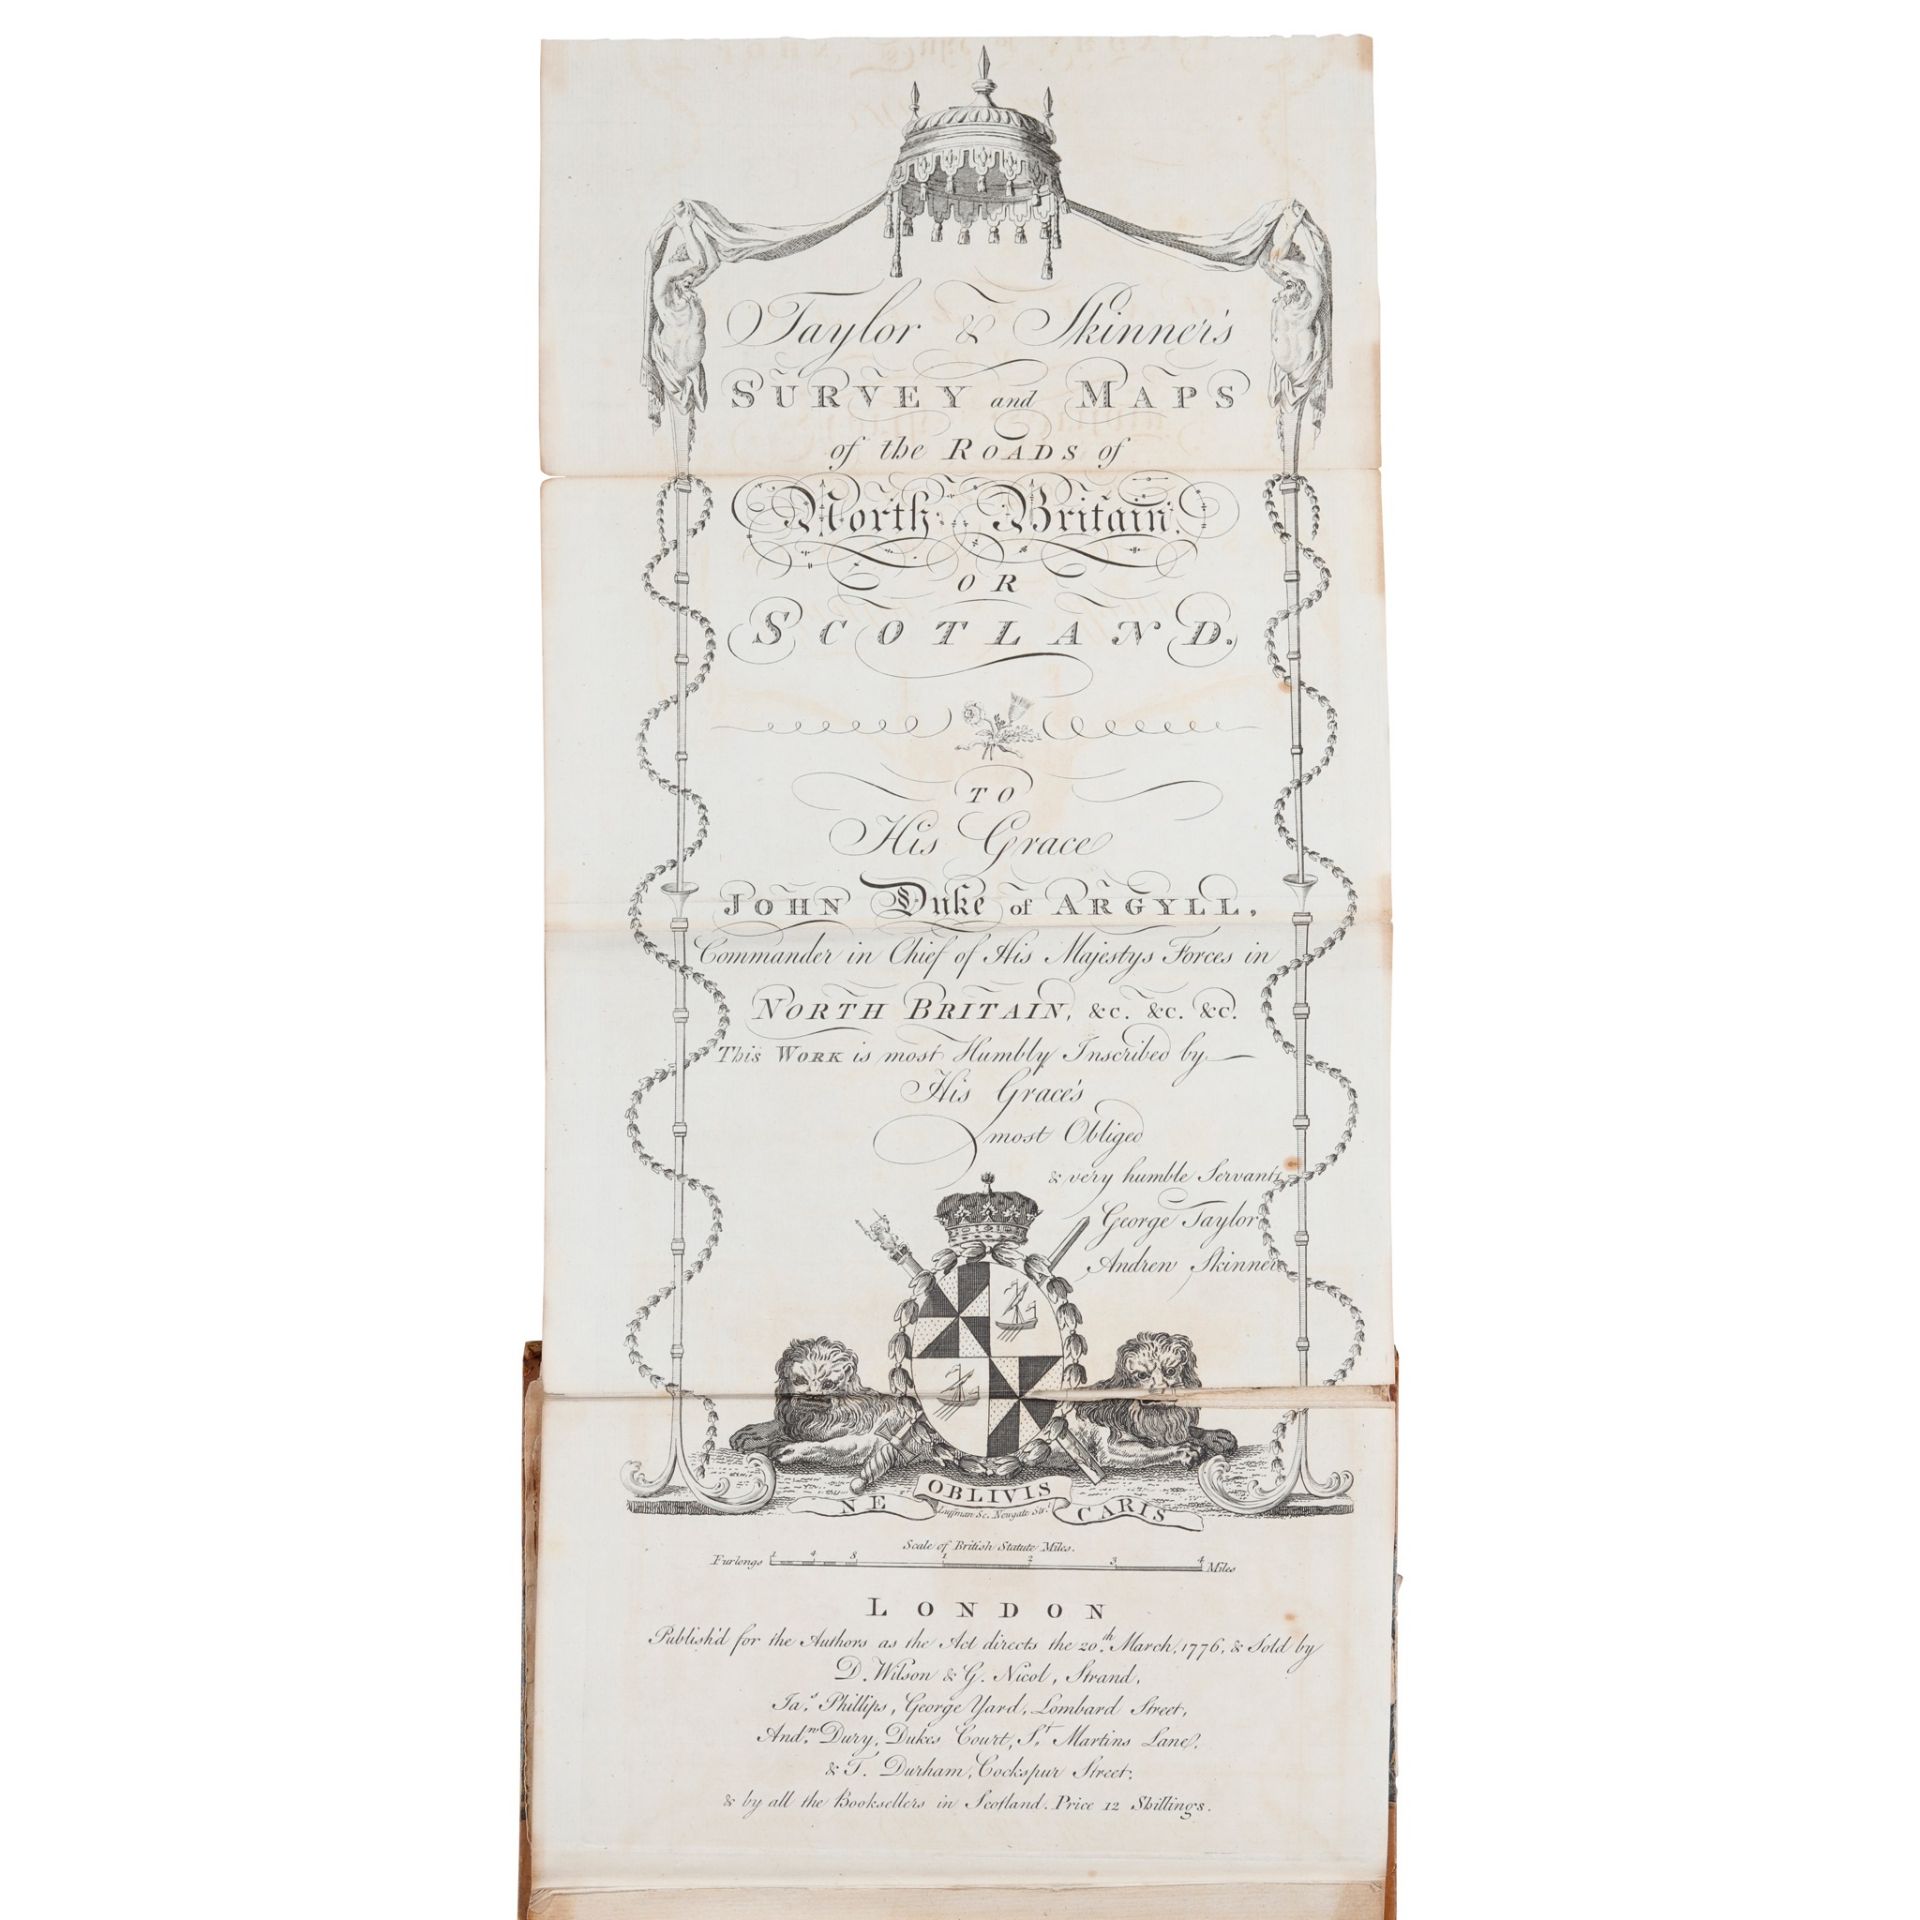 Taylor & Skinner's
SURVEY and MAPS
of the ROADS of
North Britain,
OR
SCOTLAND.
TO
His Grace
JOHN Duke of ARGYLL,
Commander in Chief of His Majestys Forces in
NORTH BRITAIN, &c. &c. &c.
This WORK is most Humbly Inscribed by
His Grace's
most Obliged
& very humble Servants
George Taylor
Andrew Skinner
NE OBLIVIS CARIS
Luffman Sc. Newgate Str.
Scale of British Statute Miles.
Furlongs 1 4 8 1 2 3 4 Miles
LONDON
Publish'd for the Authors as the Act directs the 20th March, 1776, & Sold by
D. Wilson & G. Nicol, Strand,
Jas. Phillips, George Yard, Lombard Street,
Andw. Dury, Dukes Court, St. Martins Lane,
& T. Durham, Cockspur Street;
& by all the Booksellers in Scotland. Price 12 Shillings.